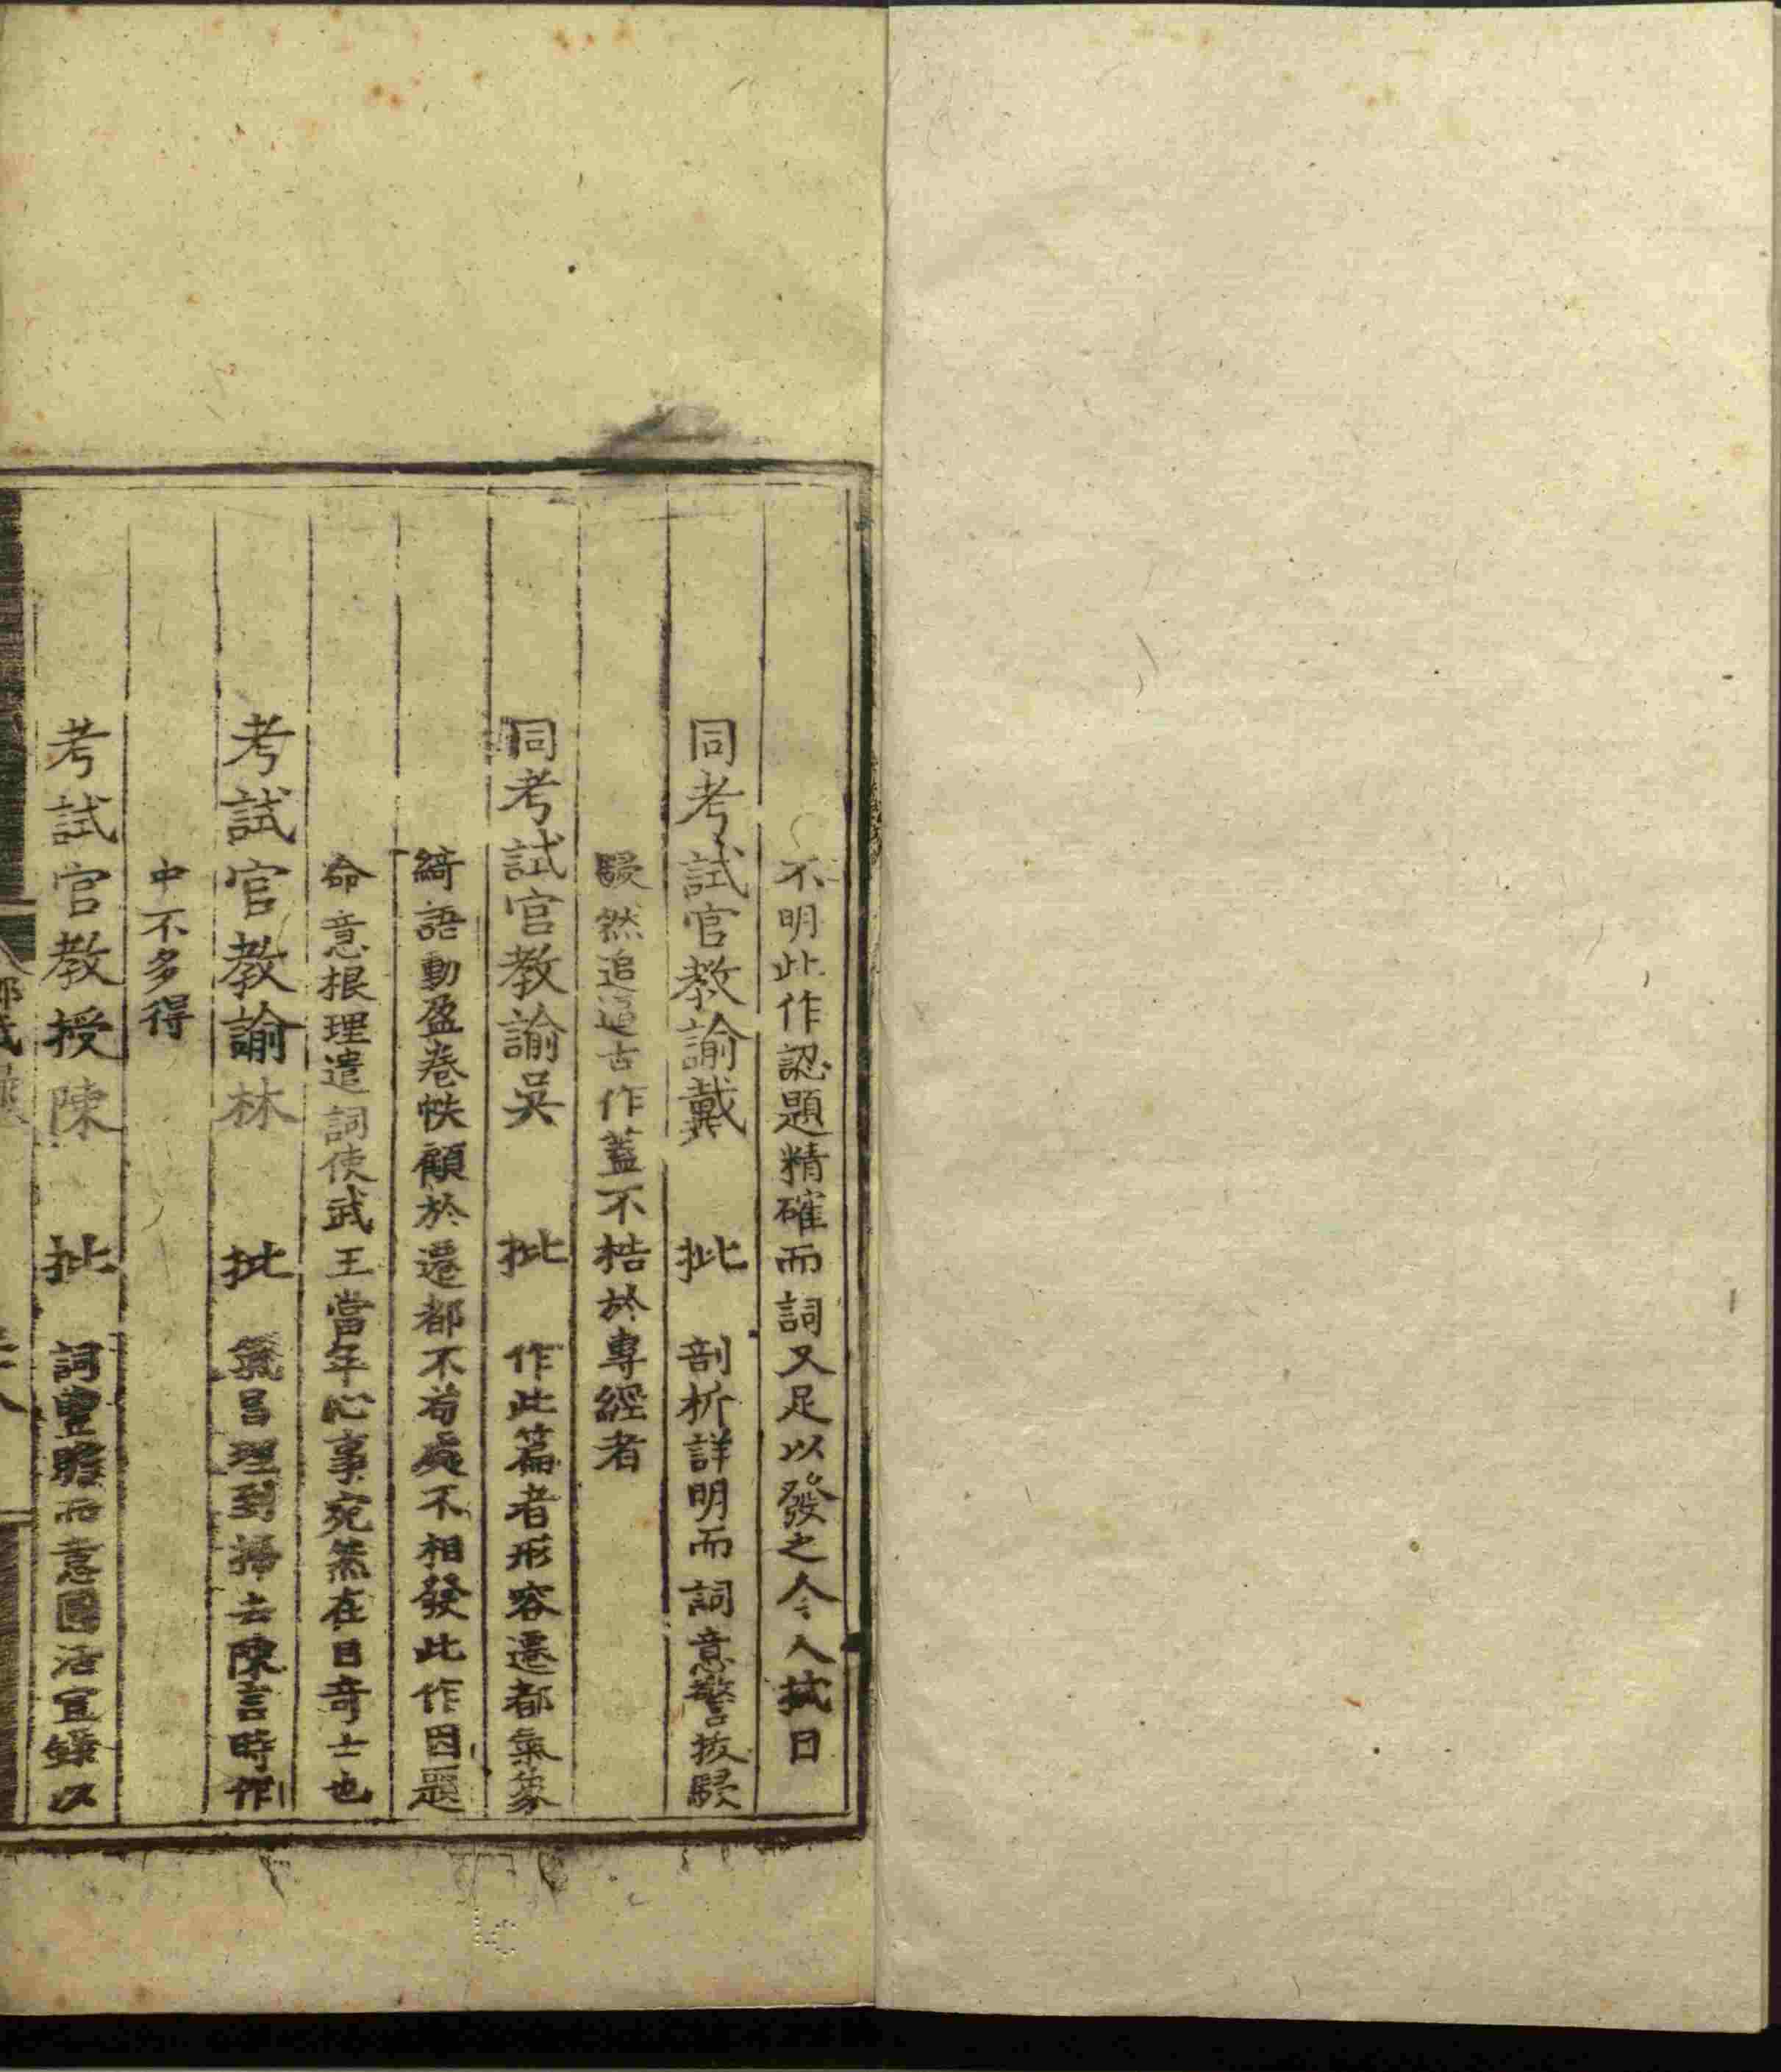 不明此作認題精確而詞又足以發之令人拭目
同考試官教諭戴　批　剖析詳明而詞意警拔駸
駸然追逼古作蓋不梏於專經者
同考試官教諭吳　批　作此篇者形容遷都氣象
綺語動盈卷帙顧於遷都不苟處不相發此作因題
命意根理遣詞使武王當年心事宛然在目奇士也
考試官教諭林　批　氣昌理到掃去陳言時作
中不多得
考試官教授陳　批　詞豐贍而意圓活宜錄以